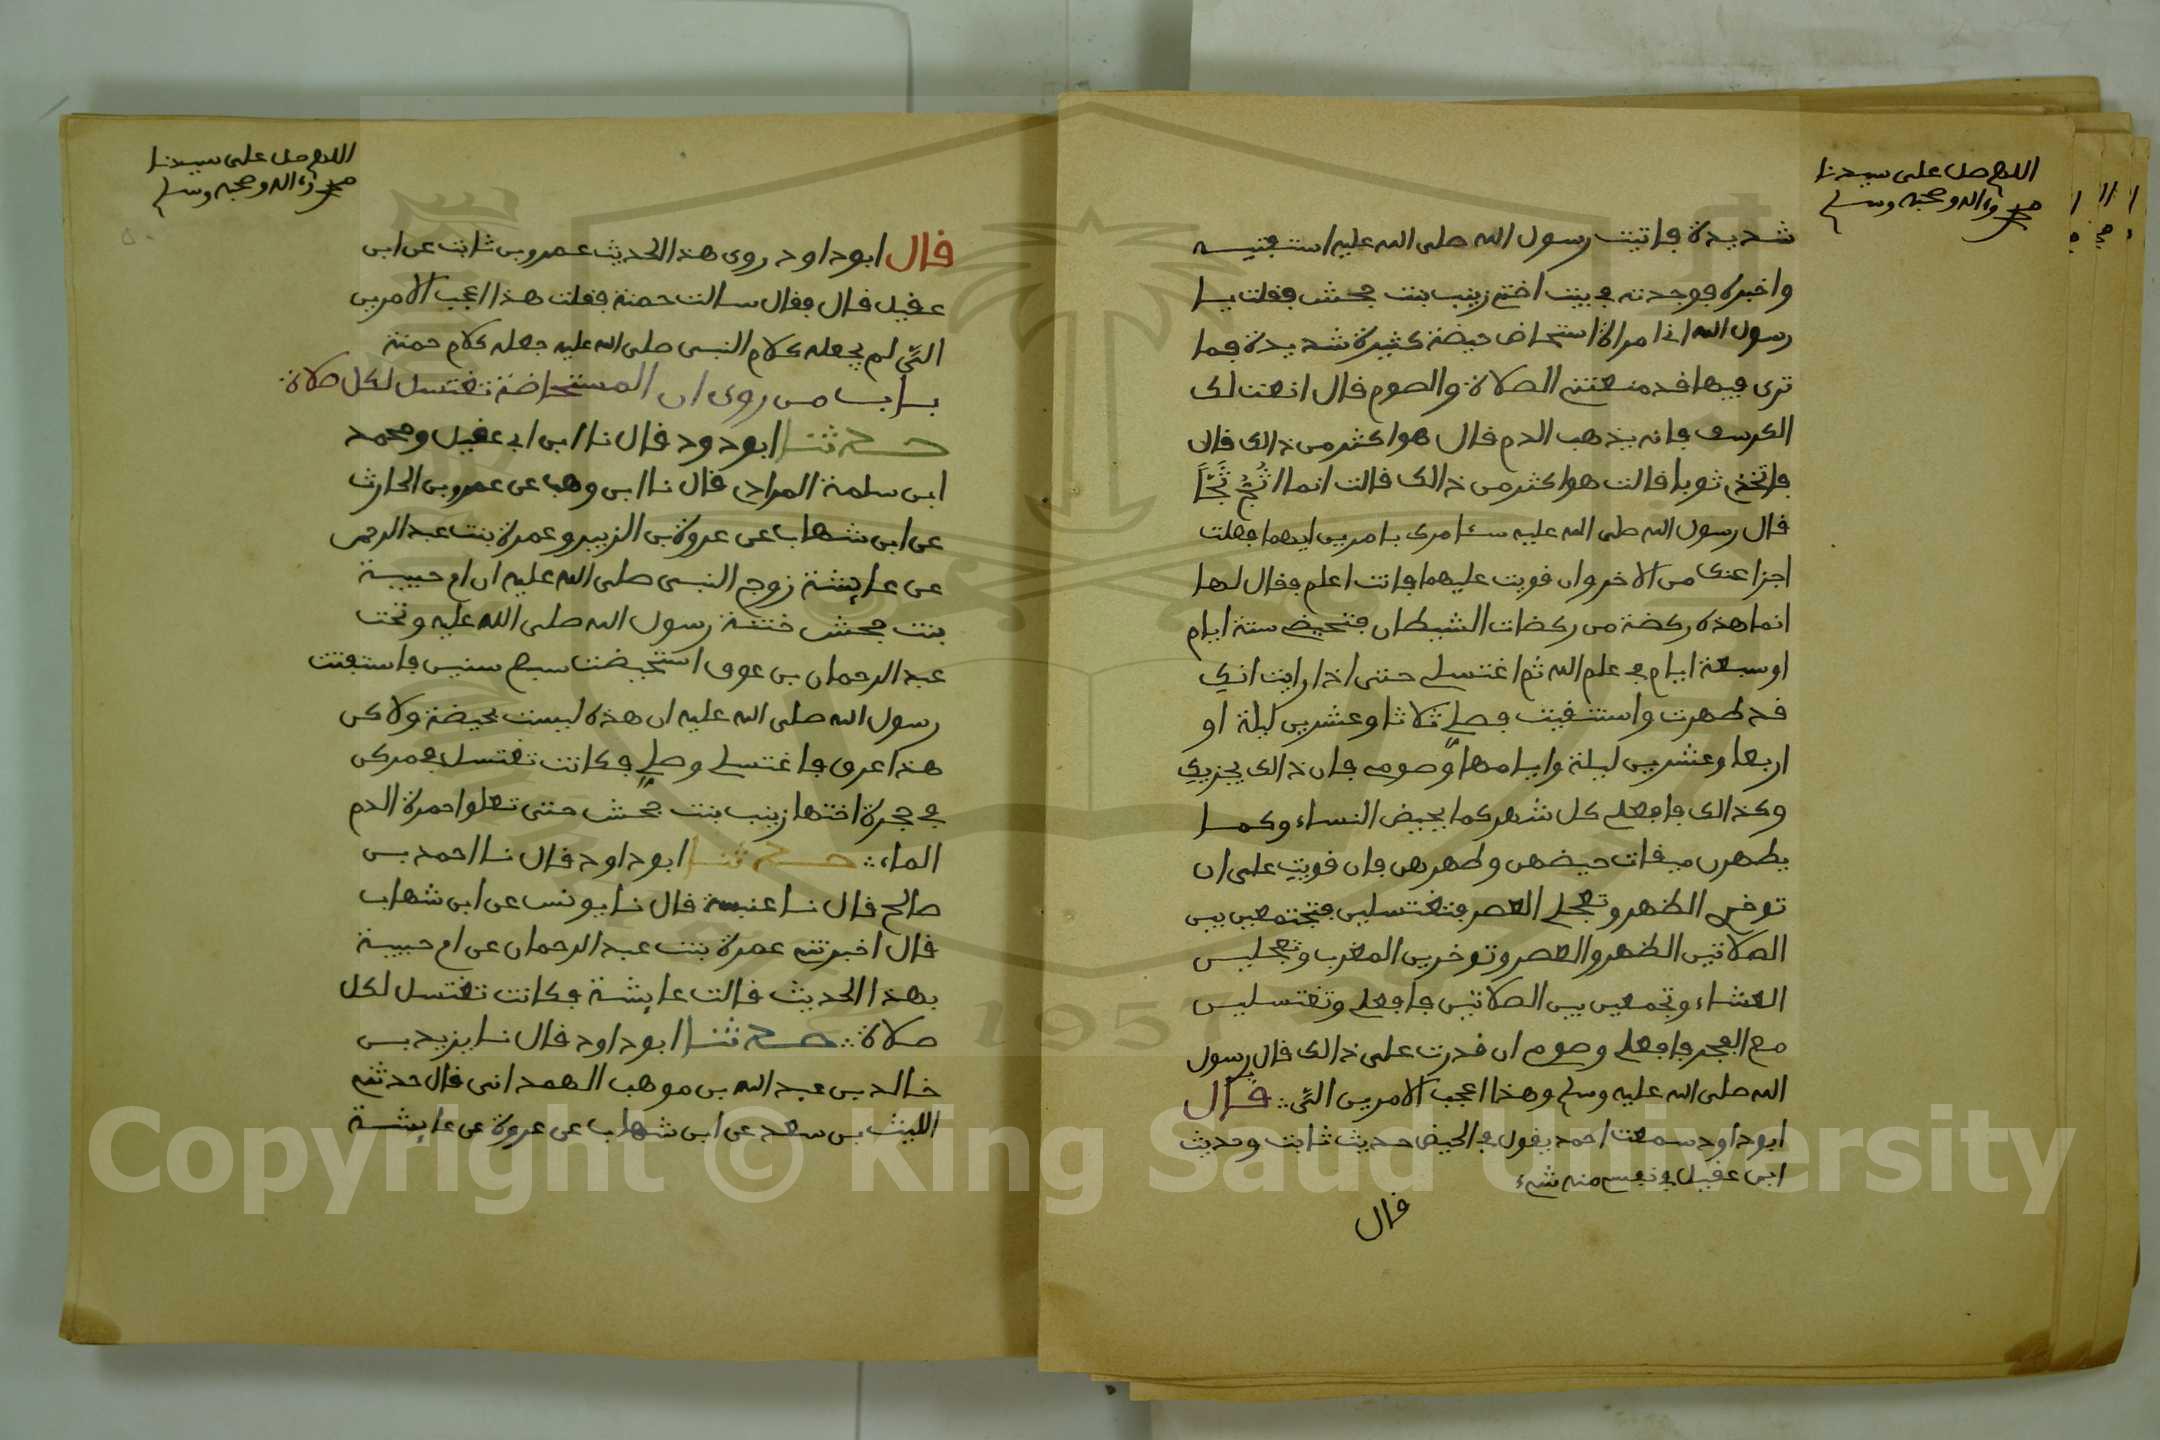 اللهم صل على سيدنا
محمد وءاله وصحبه وسلم
شديدة فاتيت رسول الله صلى الله عليه استفتيه
واخبره فوجدته في بيت اختي زينب بنت جحش فقلت يا
رسول الله اني امراة استحاض حيضة كثيرة شديدة فما
ترى فيها قد منعتني الصلاة والصوم قال انعت لك
الكرسف فانه يذهب الدم قال هو اكثر من ذالك قال
فاتخذي ثوبا قالت هو اكثر من ذالك قالت انما اثُجُّ ثَجّاً
قال رسول الله صلى الله عليه سئامرك بامرين ايهما فعلت
اجزا عنك من الاخر وان قويت عليهما فانت اعلم فقال لها
انما هذه ركضة من ركضات الشيطان فتحيضي ستة ايام
او سبعة ايام في علم الله ثم اغتسلي حتى اذا رايت انكِ
قد طهرت واستنقيت فصلي ثلاثا وعشرين ليلة او
اربعا وعشرين ليلة وايامها وصومي فان ذالك يجزيك
وكذالك فافعلي كل شهر كما يحيض النساء وكما
يطهرن ميقات حيضهن وطهرهن فان قويت على ان
توخري الظهر وتعجلي العصر فتغتسلين فتجتمعين بين
الصلاتين الظهر والعصر وتوخرين المغرب وتعجلين
العشاء وتجمعين بين الصلاتين فافعلي وتغتسلين
مع الفجر فافعلي وصومي ان قدرت على ذالك قال رسول
الله صلى الله عليه وسلم وهذا اعجب الامرين الي قال
ابو داود سمعت احمد يقول في الحيض حديث ثابت وحديث
ابن عقيل في نفسي منه شيء
قال
اللهم صل على سيدنا
محمد وءاله وصحبه وسلم
قال ابو داود روى هذا الحديث عمرو بن ثابت عن ابن
عقيل قال فقال سالت حمنة فقلت هذا اعجب الامرين
الي لم يجعله كلام النبي صلى الله عليه جعله كلام حمنة
باب من روى ان المستحاضة تغتسل لكل صلاة
حدثنا ابو دود قال نا ابن ابي عقيل ومحمد
ابن سلمة المرادي قال نا ابن وهب عن عمرو بن الحارث
عن ابن شهاب عن عروة بن الزبير وعمرة بنت عبد الرحمن
عن عايشة زوج النبي صلى الله عليه ان ام حبيبة
بنت جحش ختنة رسول الله صلى الله عليه وتحت
عبد الرحمان بن عوف استحيضت سبع سنين فاستفتت
رسول الله صلى الله عليه ان هذه ليست بحيضة ولاكن
هذا عرق فاغتسلي وصلي فكانت تغتسل في مركن
في حجرة اختها زينب بنت جحش حتى تعلوا حمرة الدم
الماء حدثنا ابو داود قال نا احمد بن
صالح قال نا عنبسة قال نا يونس عن ابن شهاب
قال اخبرتني عمرة بنت عبد الرحمان عن ام حبيبة
بهذا الحديث قالت عايشة فكانت تغتسل لكل
صلاة حدثنا ابو داود قال نا يزيد بن
خالد بن عبد الله بن موهب الهمداني قال حدثني
الليث بن سعد عن ابن شهاب عن عروة عن عايشة
1957
Copyright © King Saud University